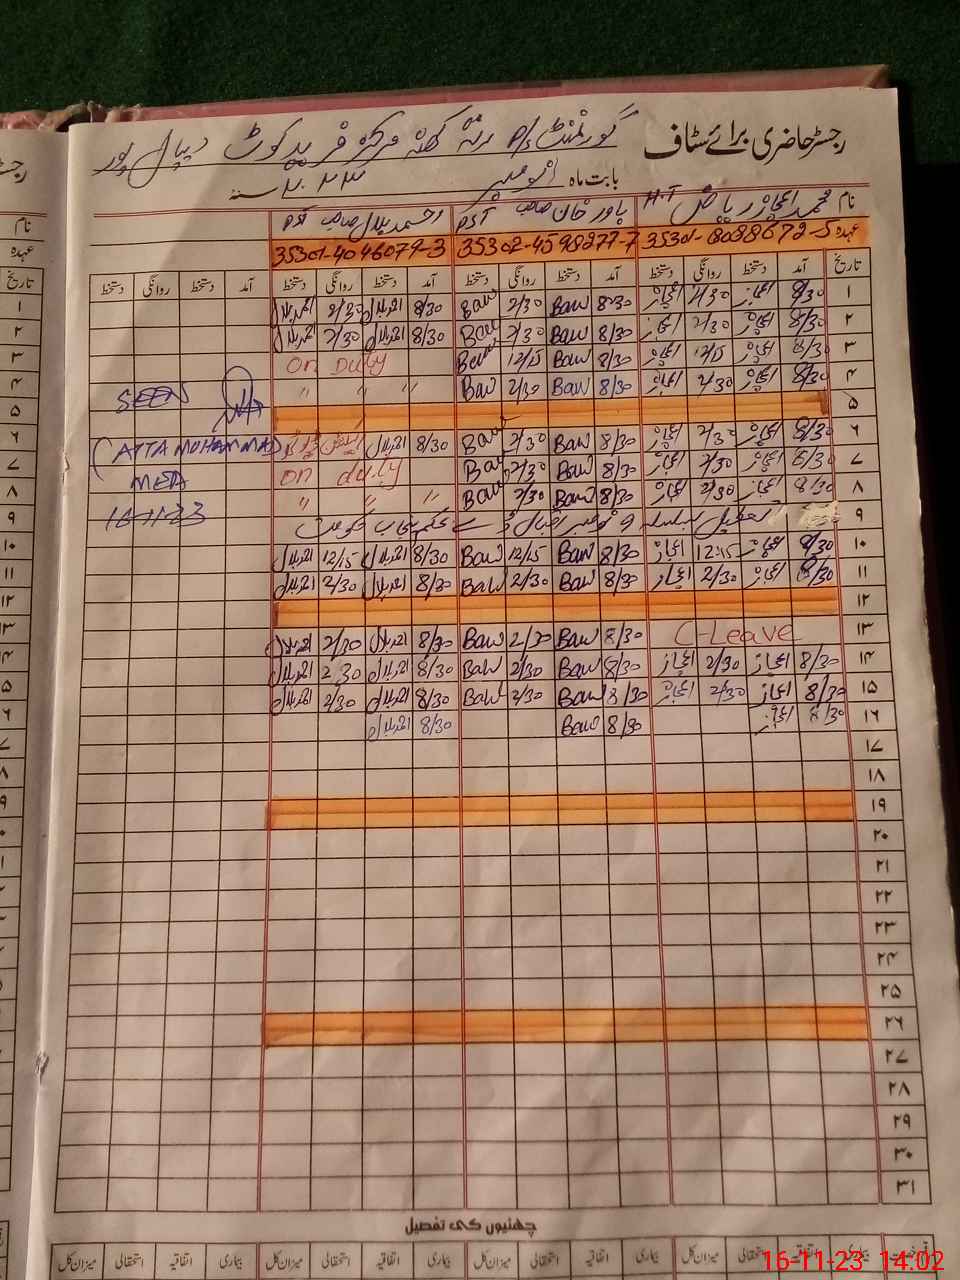 رجسٹر حاضری برائے سٹاف گورنمنٹ P/S فرید کوٹ دیپال پور
بابت ماہ نومبر ۲۰۲۳ سنہ
نام محمد اعجاز ریاض H.T یاور خان صاحب PST احمد بلال صاحب PST
عہدہ 35302-4598277-7 35301-4046079-3
تاریخ آمد دستخط روانگی دستخط آمد دستخط روانگی دستخط آمد دستخط روانگی دستخط آمد دستخط روانگی دستخط
۱ 8/30 اعجاز 2/30 اعجاز 8/30 Baw 2/30 Baw 8/30 احمد بلال 2/30 احمد بلال
۲ 8/30 اعجاز 2/30 اعجاز 8/30 Baw 2/30 Baw 8/30 احمد بلال 2/30 احمد بلال
۳ 8/30 اعجاز 12/15 اعجاز 8/30 Baw 12/15 Baw On Duty
۴ 8/30 اعجاز 2/30 اعجاز 8/30 Baw 2/30 Baw " " "
SEEN
۵
۶ 8/30 اعجاز 2/30 اعجاز 8/30 Baw 2/30 Baw 8/30 احمد بلال
(ATTA MOHAMMAD
۷ 8/30 اعجاز 2/30 اعجاز 8/30 Baw 2/30 Baw on duty
MEA
۸ 8/30 اعجاز 2/30 اعجاز 8/30 Baw 2/30 Baw " " "
۹ تعطیل بسلسلہ 9 نومبر اقبال ڈے حکم پنجاب حکومت
16-11-23
۱۰ 8/30 اعجاز 12:15 اعجاز 8/30 Baw 12/15 Baw 8/30 احمد بلال 12/15 احمد بلال
۱۱ 8/30 اعجاز 2/30 اعجاز 8/30 Baw 2/30 Baw 8/30 احمد بلال 2/30 احمد بلال
۱۲
۱۳ C-Leave 8/30 Baw 2/30 Baw 8/30 احمد بلال 2/30 احمد بلال
۱۴ 8/30 اعجاز 2/30 اعجاز 8/30 Baw 2/30 Baw 8/30 احمد بلال 2/30 احمد بلال
۱۵ 8/30 اعجاز 2/30 اعجاز 8/30 Baw 2/30 Baw 8/30 احمد بلال 2/30 احمد بلال
۱۶ 8/30 اعجاز 8/30 Baw 8/30 احمد بلال
۱۷
۱۸
۱۹
۲۰
۲۱
۲۲
۲۳
۲۴
۲۵
۲۶
۲۷
۲۸
۲۹
۳۰
۳۱
چھٹیوں کی تفصیل
بیماری اتفاقیہ استحقاقی میزان کل بیماری اتفاقیہ استحقاقی میزان کل بیماری اتفاقیہ استحقاقی میزان کل بیماری اتفاقیہ استحقاقی میزان کل
16-11-23 14:02